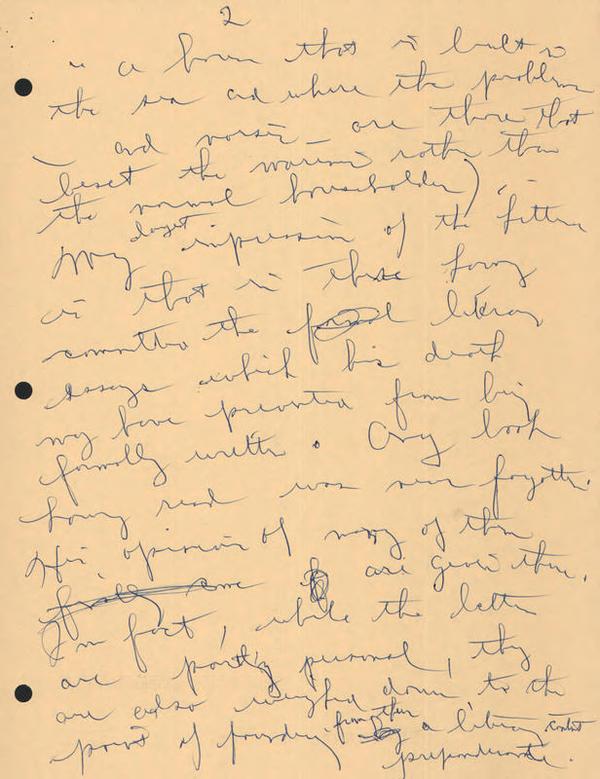 2
is a house that is built in
the sea and where the problems
— and worries — are those that
beset the mariner rather than
the normal householder),
My impression of the letters
is that in these Lowry
committed the literary
essays which his death
may have prevented from being
formally written. Any book
Lowry read was never forgotten.
His opinion of many of them
are given there.
In fact, while the letters
are partly personal, they
are also weighed down to the
point of from their a literary content
preponderate.